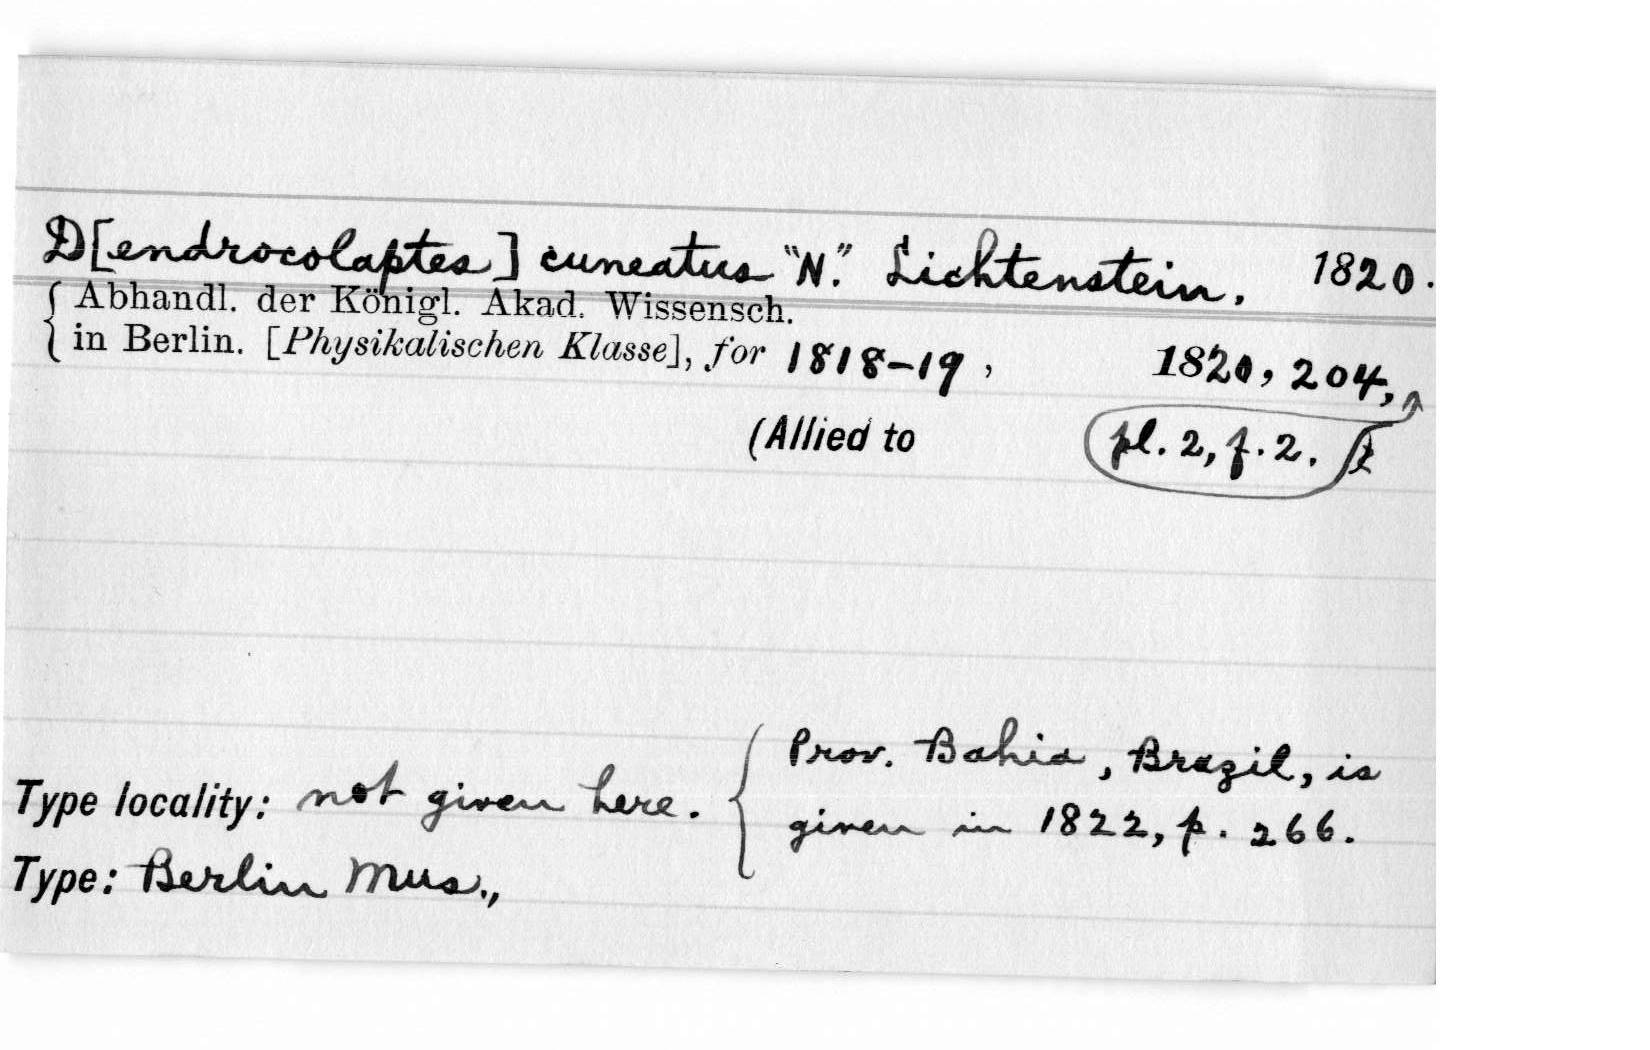 D[endrocolaptes] cuneatus "N." Lichtenstein. 1820.
Abhandl. der Königl. Akad. Wissensch.
in Berlin. [Physikalischen Klasse], for 1818-19, 1820, 204,
(Allied to pl. 2, f. 2.
Prov. Bahia, Brazil, is
Type locality: not given here. given in 1822, p. 266.
Type: Berlin Mus.,